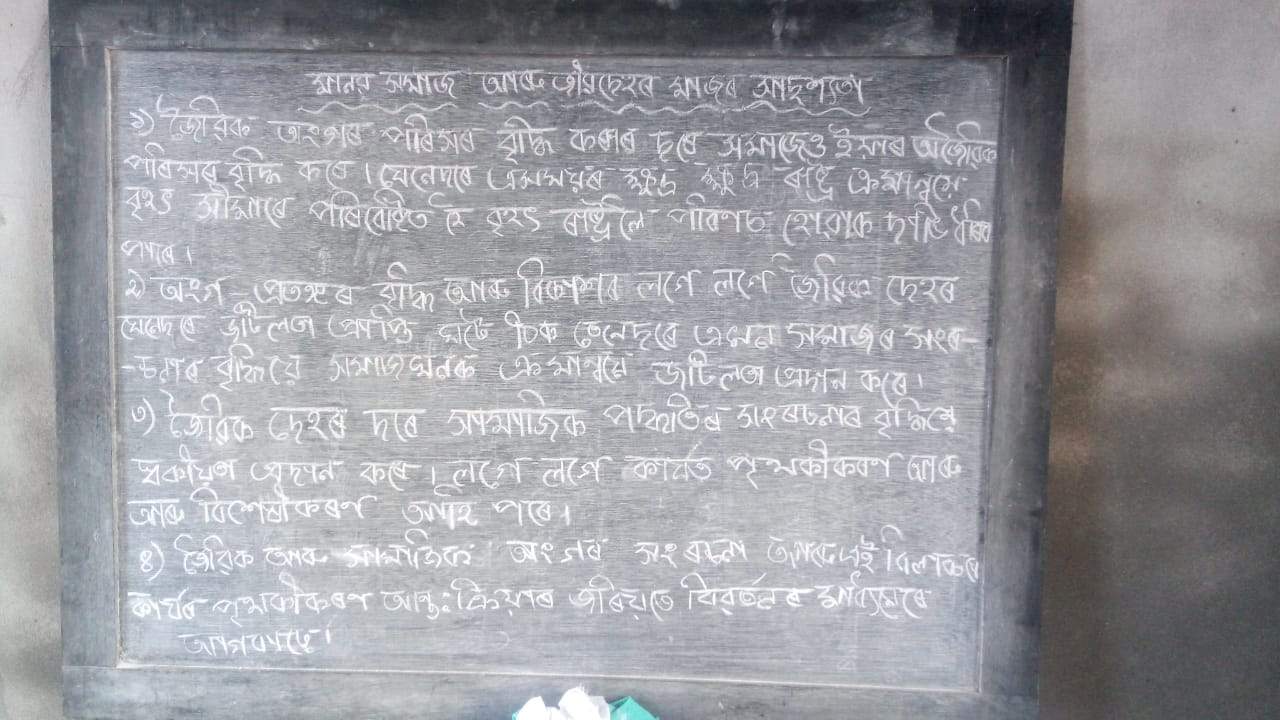 মানৱ সমাজ আৰু জীৱদেহৰ মাজৰ সাদৃশ্যতা
১) জৈৱিক অংগৰ পৰিসৰ বৃদ্ধি কৰাৰ দৰে সমাজেও ইয়াৰ অজৈৱিক
পৰিসৰ বৃদ্ধি কৰে। যেনেদৰে এসময়ৰ ক্ষুদ্ৰ ক্ষুদ্ৰ ৰাষ্ট্ৰ ক্ৰমান্বয়ে
বৃহৎ সীমাৰে পৰিবেষ্টিত হৈ বৃহৎ ৰাষ্ট্ৰলৈ পৰিণত হোৱাক দৰ্শাই ধৰিব
পাৰে।
২) অংগ-প্ৰত্যংগৰ বৃদ্ধি আৰু বিকাশৰ লগে লগে জৈৱিক দেহৰ
যেনেদৰে জটিলতা প্ৰাপ্তি ঘটে ঠিক তেনেদৰে এখন সমাজৰ সংৰ-
-চনাৰ বৃদ্ধিয়ে সমাজখনক ক্ৰমান্বয়ে জটিলতা প্ৰদান কৰে।
৩) জৈৱিক দেহৰ দৰে সামাজিক পদ্ধতিৰ সংৰচনাৰ বৃদ্ধিয়ে
স্বকীয়তা প্ৰদান কৰে। লগে লগে কাৰ্যত পৃথকীকৰণ আৰু
আৰু বিশেষীকৰণ আহি পৰে।
৪) জৈৱিক আৰু সামাজিক অংগৰ সংৰচনা আৰু এই বিলাকৰ
কাৰ্যৰ পৃথকীকৰণ আন্তঃক্ৰিয়াৰ জৰিয়তে বিৱৰ্তনৰ মাধ্যমেৰে
আগবাঢ়ে।